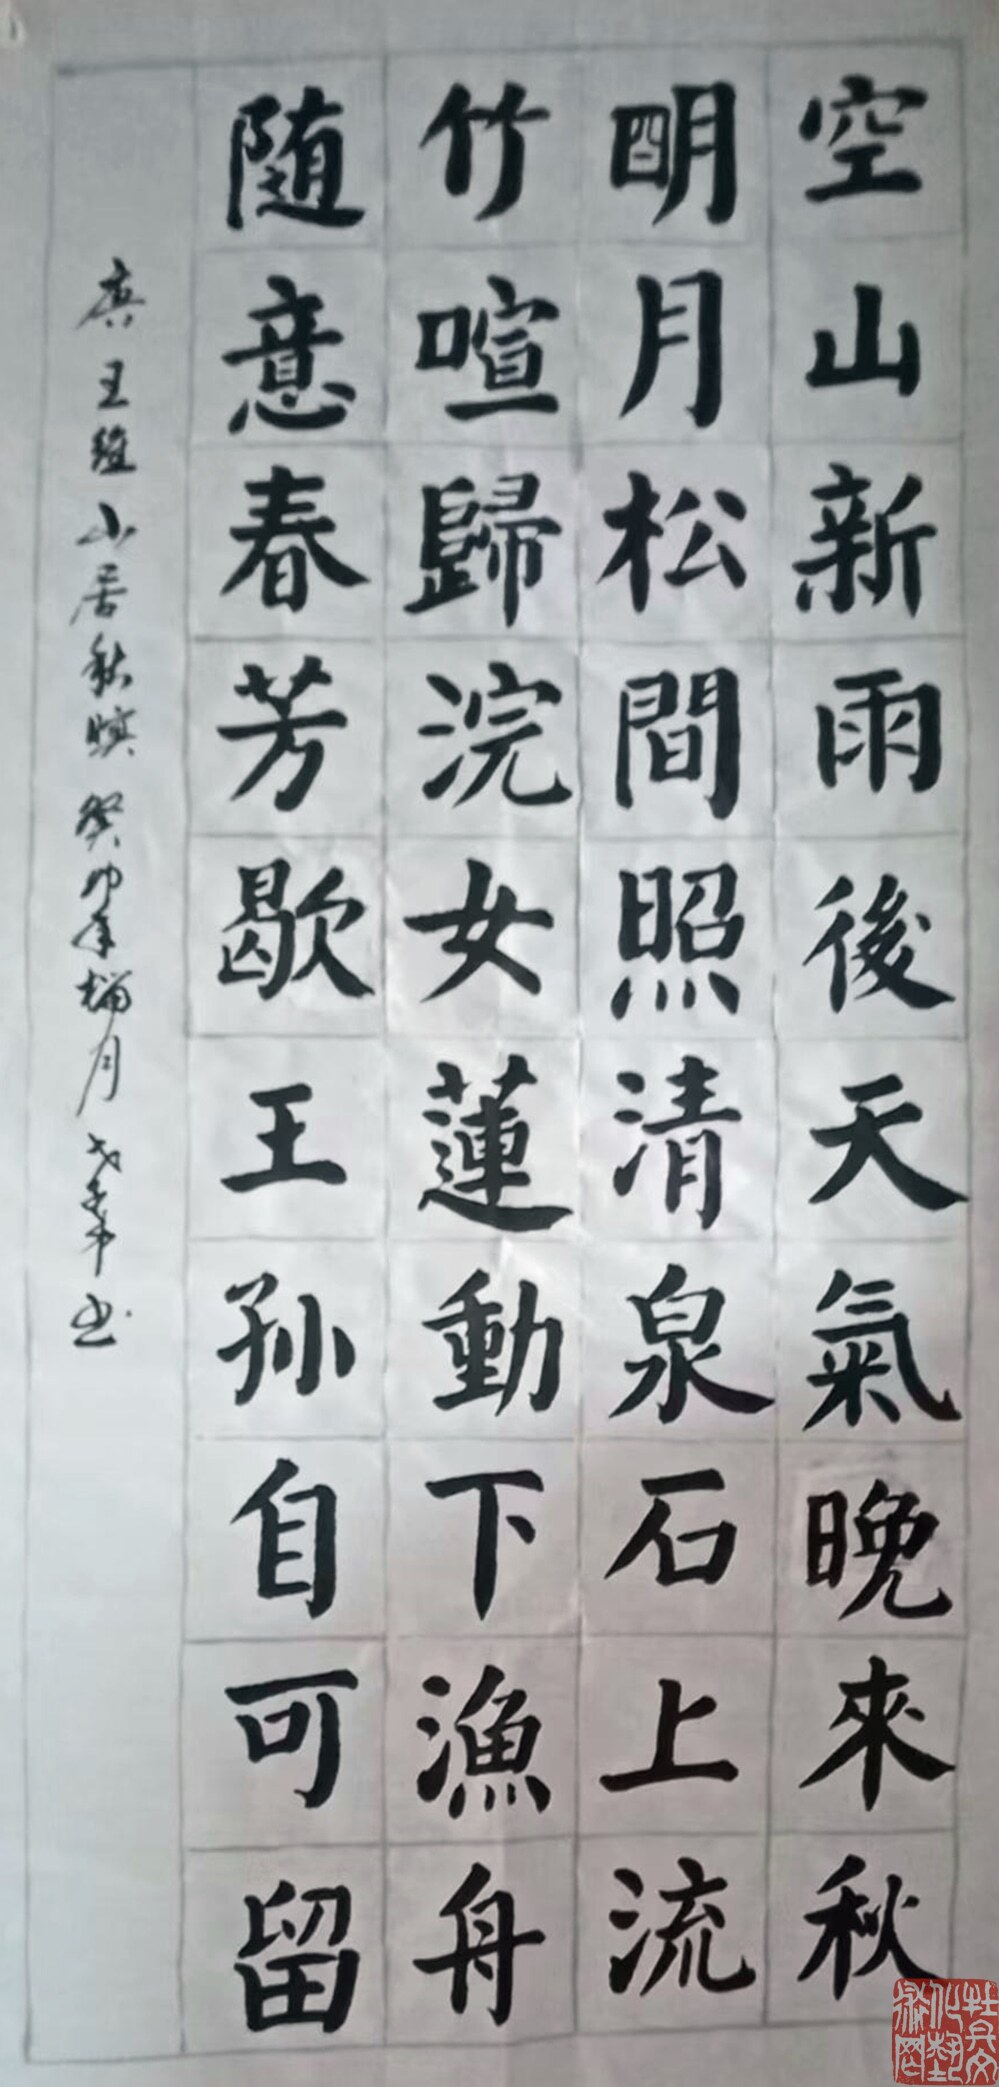 空山新雨後天氣晚來秋
明月松間照清泉石上流
竹喧歸浣女蓮動下漁舟
随意春芳歇王孙自可留
王維山居秋暝 癸卯年 月 書